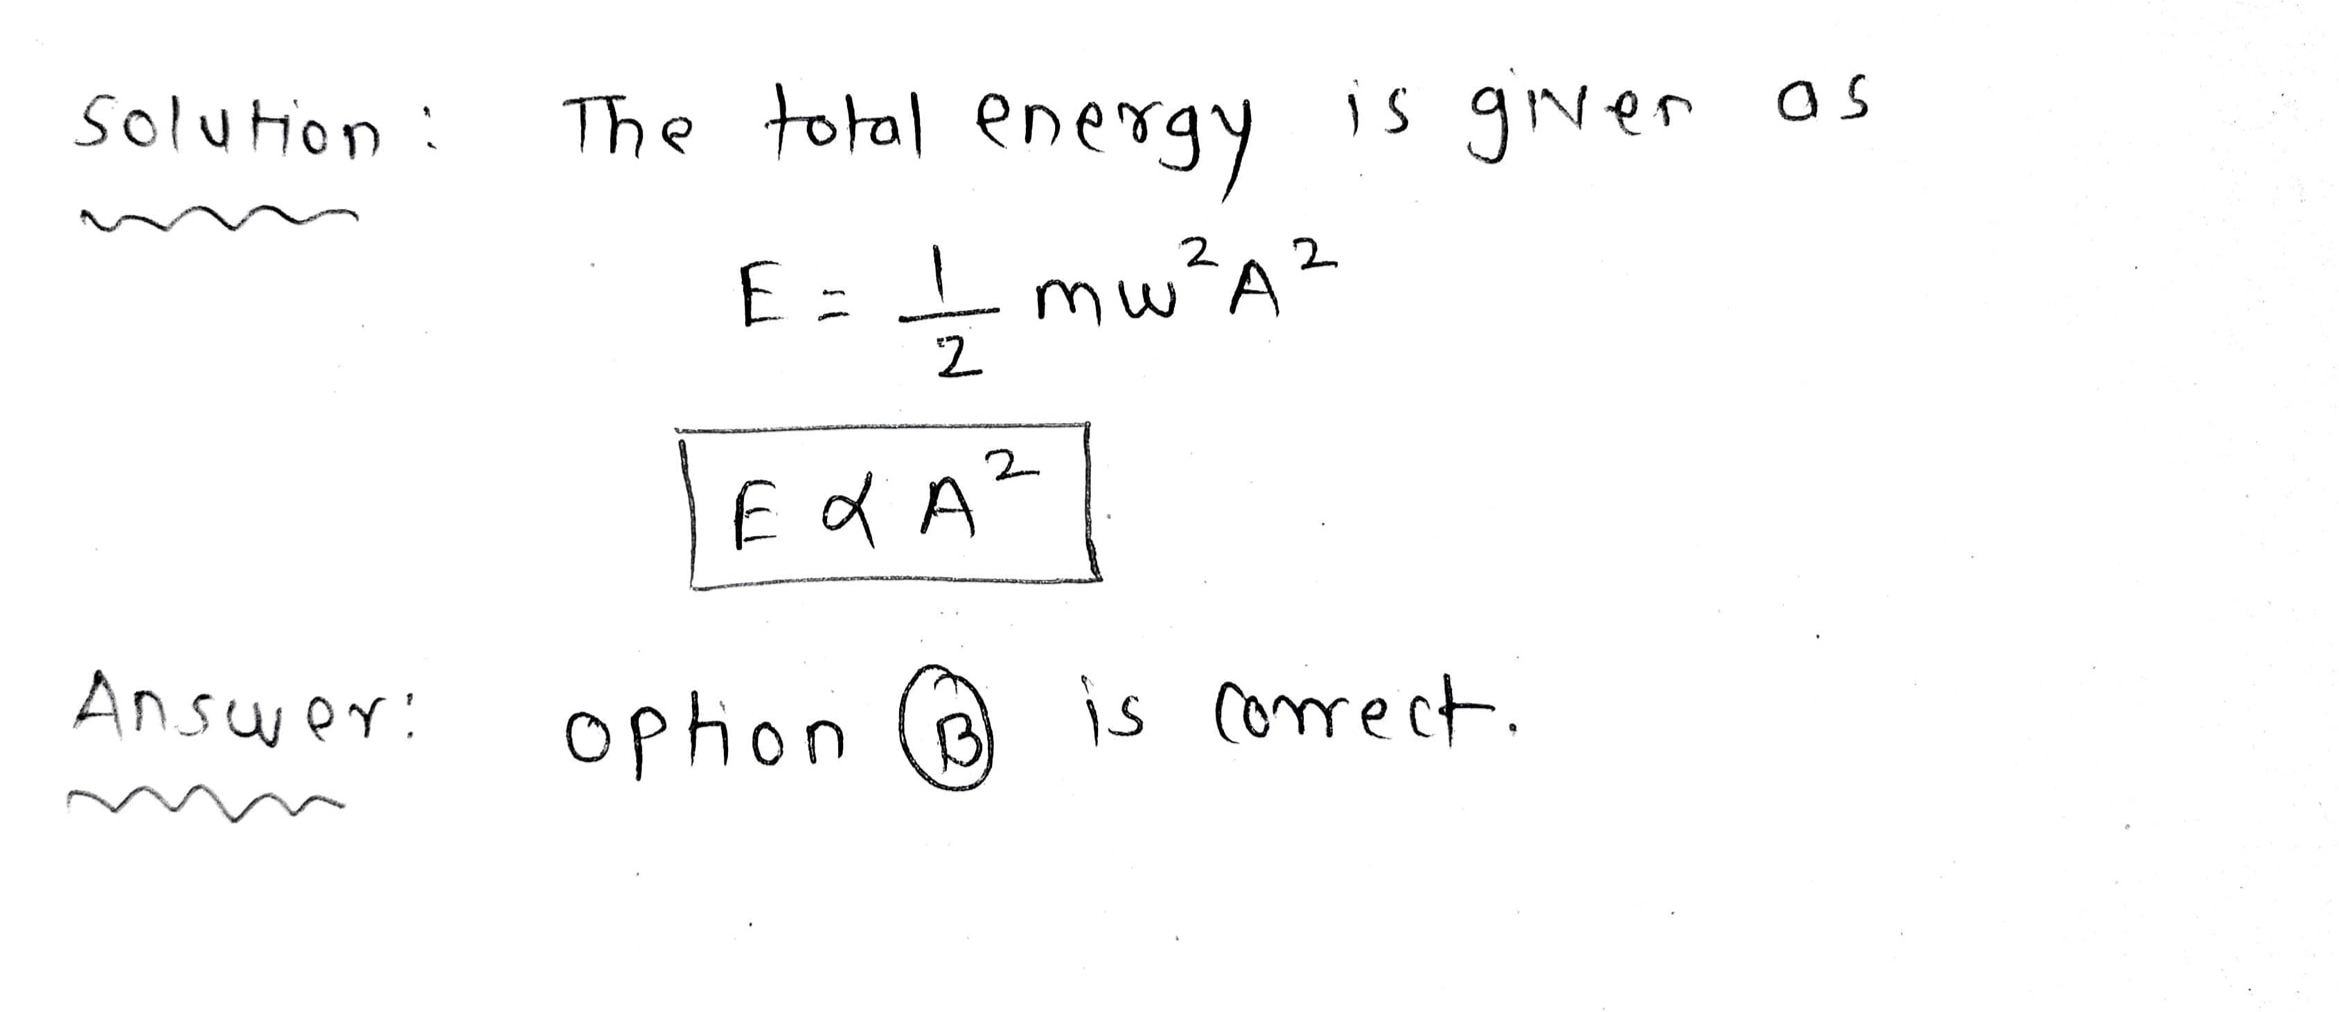 Solution: The total energy is given as
E = 1/2 mw²A²
E α A²
Answer: option B is correct.